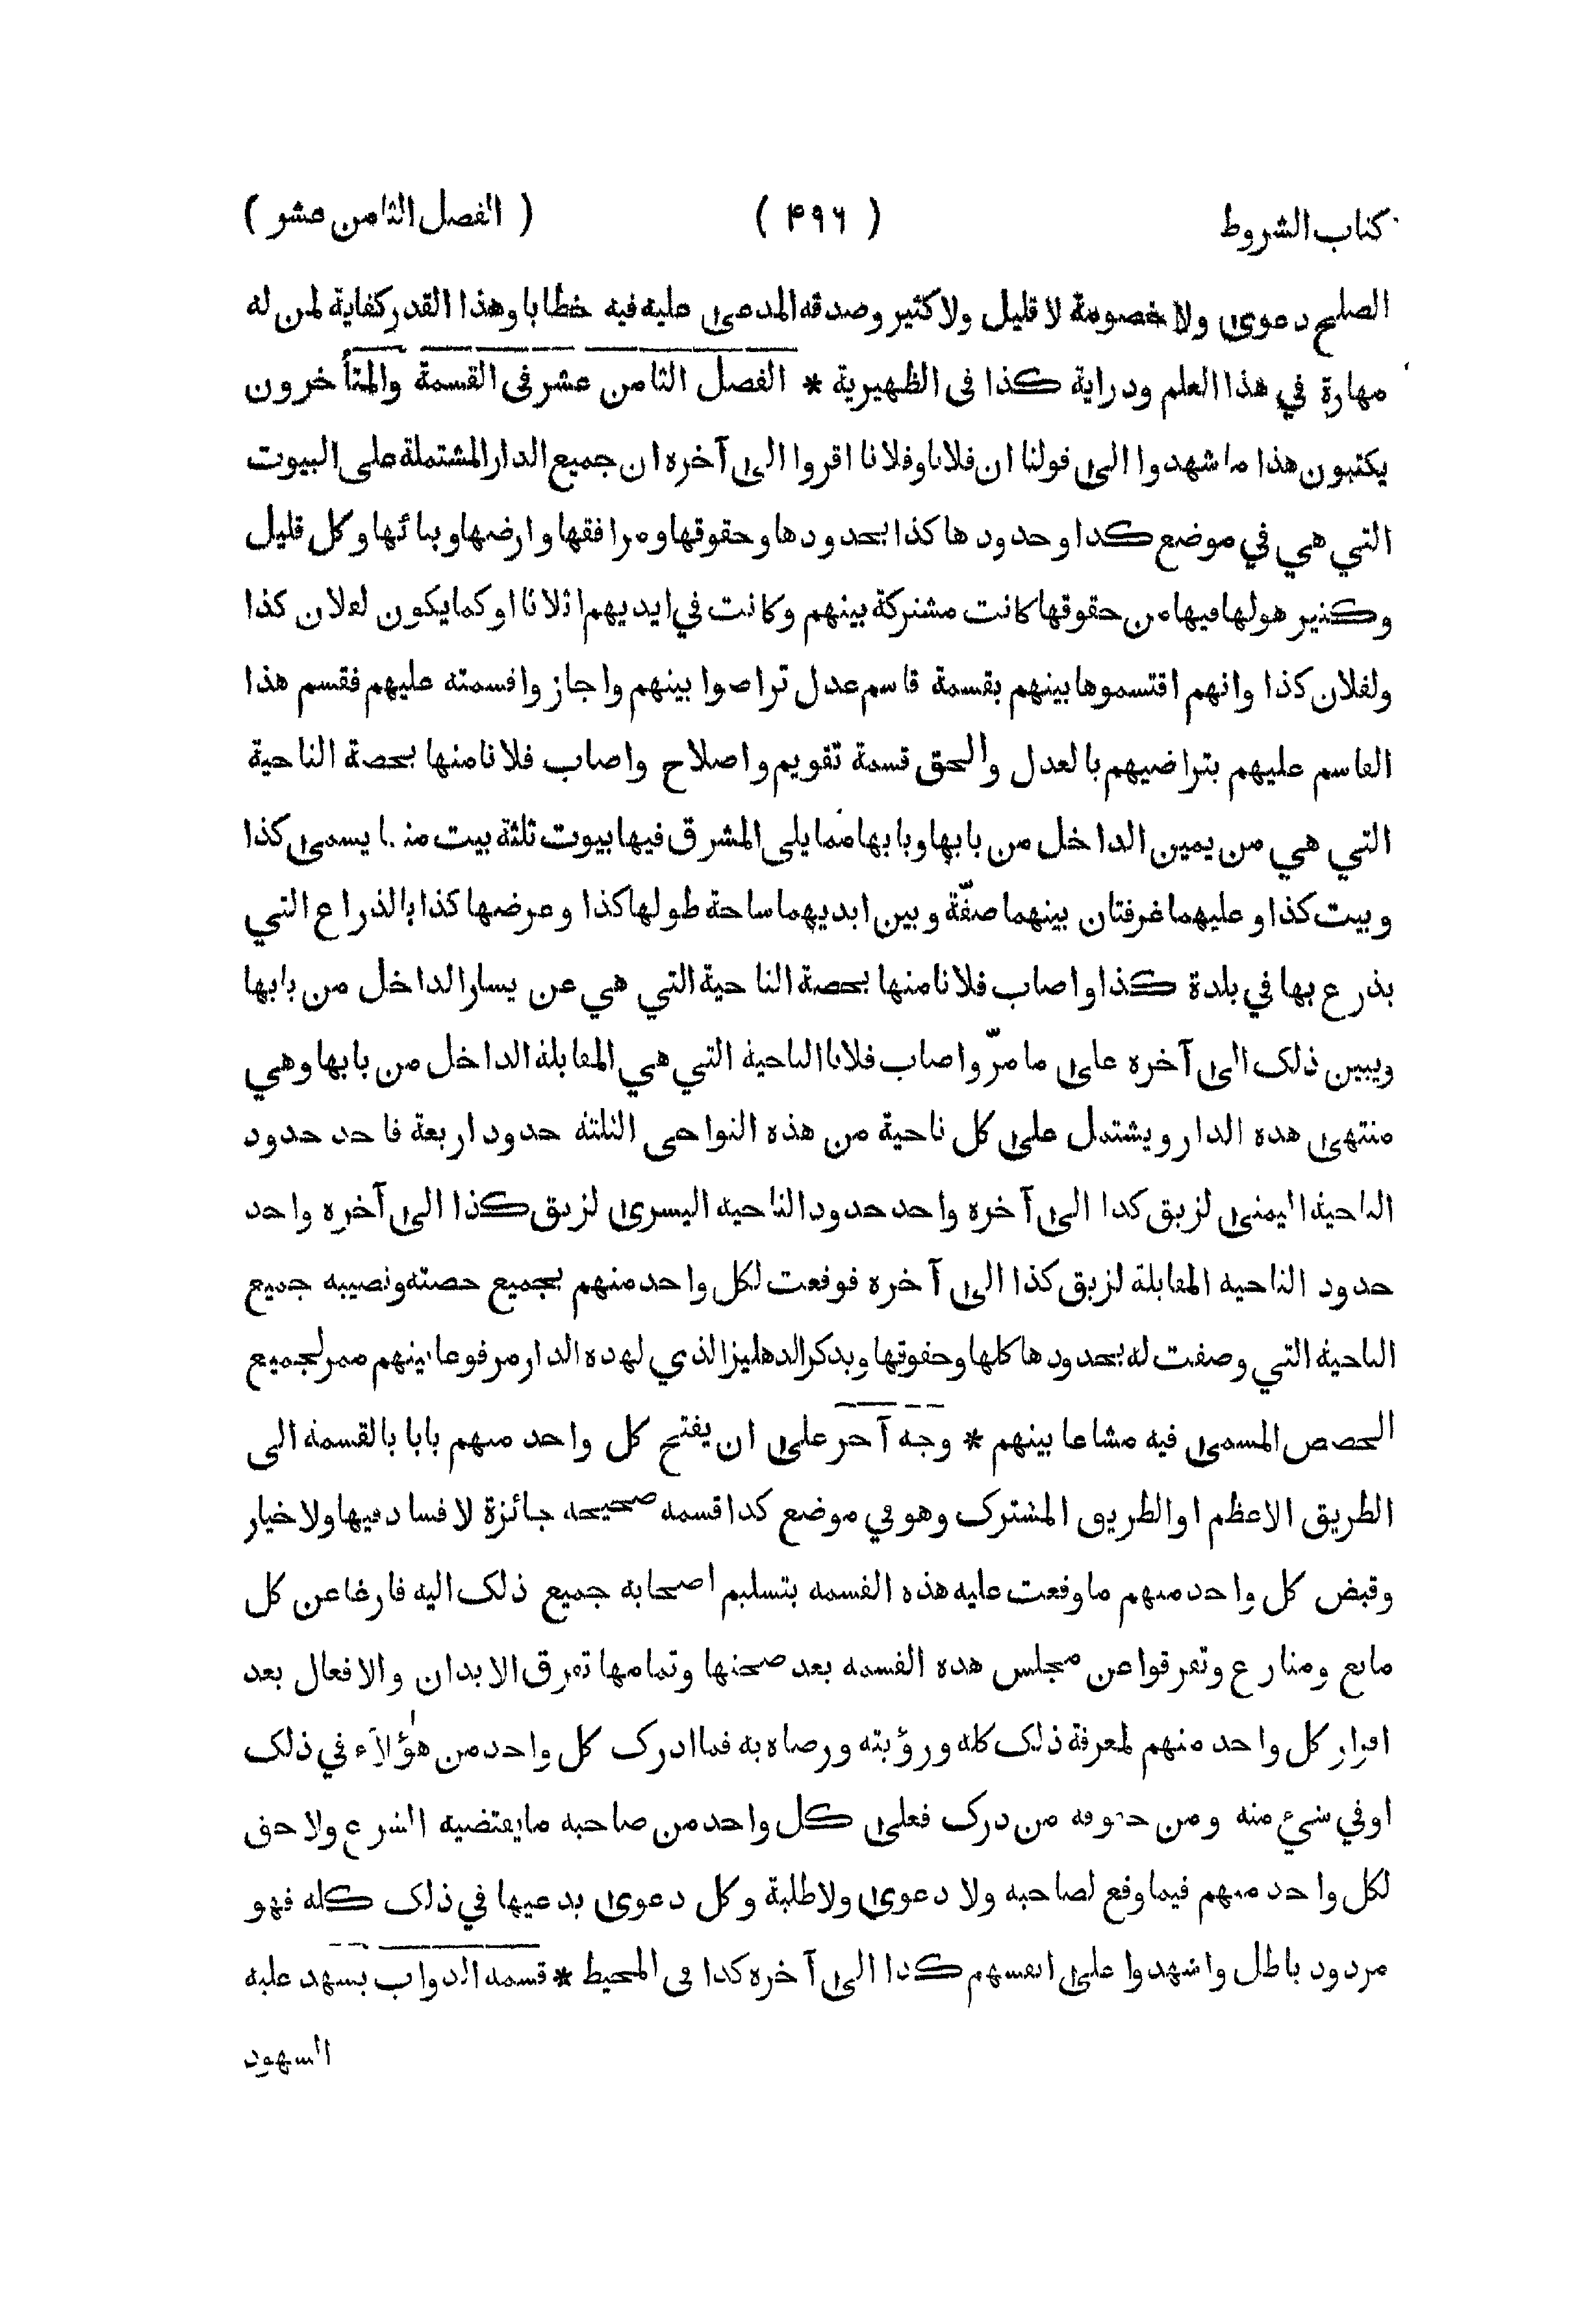 كتاب الشروط ( ۴۹۶ ) ( الفصل الثامن عشر )
الصلح دعوى ولا خصومة لا قليل ولا كثير وصدقه المدعى عليه فيه خطابا وهذا القدر كفاية لمن له
مهارة في هذا العلم ودراية كذا فى الظهيرية * الفصل الثامن عشر فى القسمة والمتأخرون
يكتبون هذا ما شهدوا الى قولنا ان فلانا وفلانا اقروا الى آخره ان جميع الدار المشتملة على البيوت
التي هي في موضع كذا وحدودها كذا بحدودها وحقوقها ومرافقها وارضها وبنائها وكل قليل
وكثير هو لها فيها من حقوقها كانت مشتركة بينهم وكانت في ايديهم اثلاثا او كما يكون لفلان كذا
ولفلان كذا وانهم اقتسموها بينهم بقسمة قاسم عدل تراضوا بينهم واجازوا قسمته عليهم فقسم هذا
القاسم عليهم بتراضيهم بالعدل والحق قسمة تقويم واصلاح واصاب فلانا منها بحصة الناحية
التي هي من يمين الداخل من بابها وبابها مما يلى المشرق فيها بيوت ثلثة بيت منها يسمى كذا
وبيت كذا وعليهما غرفتان بينهما صفّة وبين ايديهما ساحة طولها كذا وعرضها كذا بالذراع التي
يذرع بها في بلدة كذا واصاب فلانا منها بحصة الناحية التي هي عن يسار الداخل من بابها
ويبين ذلك الى آخره على ما مرّ واصاب فلانا الناحية التي هي المقابلة الداخل من بابها وهي
منتهى هذه الدار ويشتمل على كل ناحية من هذه النواحى الثلثة حدود اربعة فاحد حدود
الناحية اليمنى لزيق كذا الى آخره واحد حدود الناحية اليسرى لزيق كذا الى آخره واحد
حدود الناحية المقابلة لزيق كذا الى آخره فوقعت لكل واحد منهم بجميع حصته ونصيبه جميع
الناحية التي وصفت له بحدودها كلها وحقوقها ويذكر الدهليز الذي لهذه الدار مرفوعا بينهم ممر لجميع
الحصص المسمى فيه مشاعا بينهم * وجه آخر على ان يفتح كل واحد منهم بابا بالقسمة الى
الطريق الاعظم او الطريق المشترك وهو في موضع كذا قسمة صحيحة جائزة لا فساد فيها ولا خيار
وقبض كل واحد منهم ما وقعت عليه هذه القسمة بتسليم اصحابه جميع ذلك اليه فارغا عن كل
مانع ومنازع وتفرقوا عن مجلس هذه القسمة بعد صحتها وتمامها تفرق الابدان والافعال بعد
اقرار كل واحد منهم لمعرفة ذلك كله ورؤيته ورضاه به فما ادرك كل واحد من هؤلآء في ذلك
او في شيء منه ومن حقوقه من درك فعلى كل واحد من صاحبه ما يقتضيه الشرع ولا حق
لكل واحد منهم فيما وقع لصاحبه ولا دعوى ولا طلبة وكل دعوى يدعيها في ذلك كله فهو
مردود باطل واشهدوا على انفسهم كذا الى آخره كذا فى المحيط * قسمة الدواب يشهد عليه
الشهود